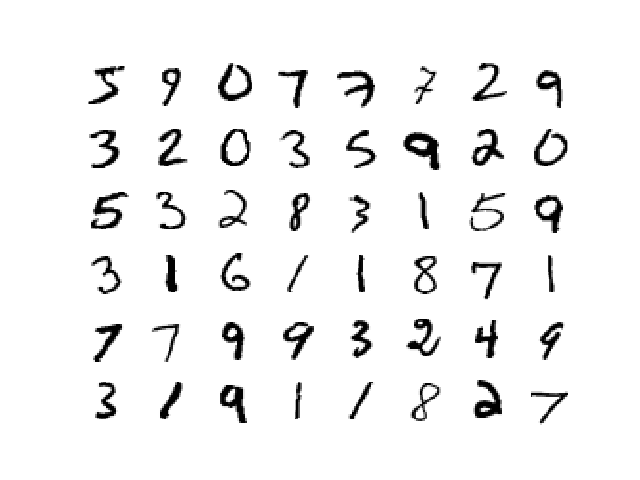 5 9 0 7 7 7 2 9
3 2 0 3 5 9 2 0
5 3 2 8 3 1 5 9
3 1 6 1 1 8 7 1
7 7 9 9 3 2 4 9
3 1 9 1 1 8 2 7